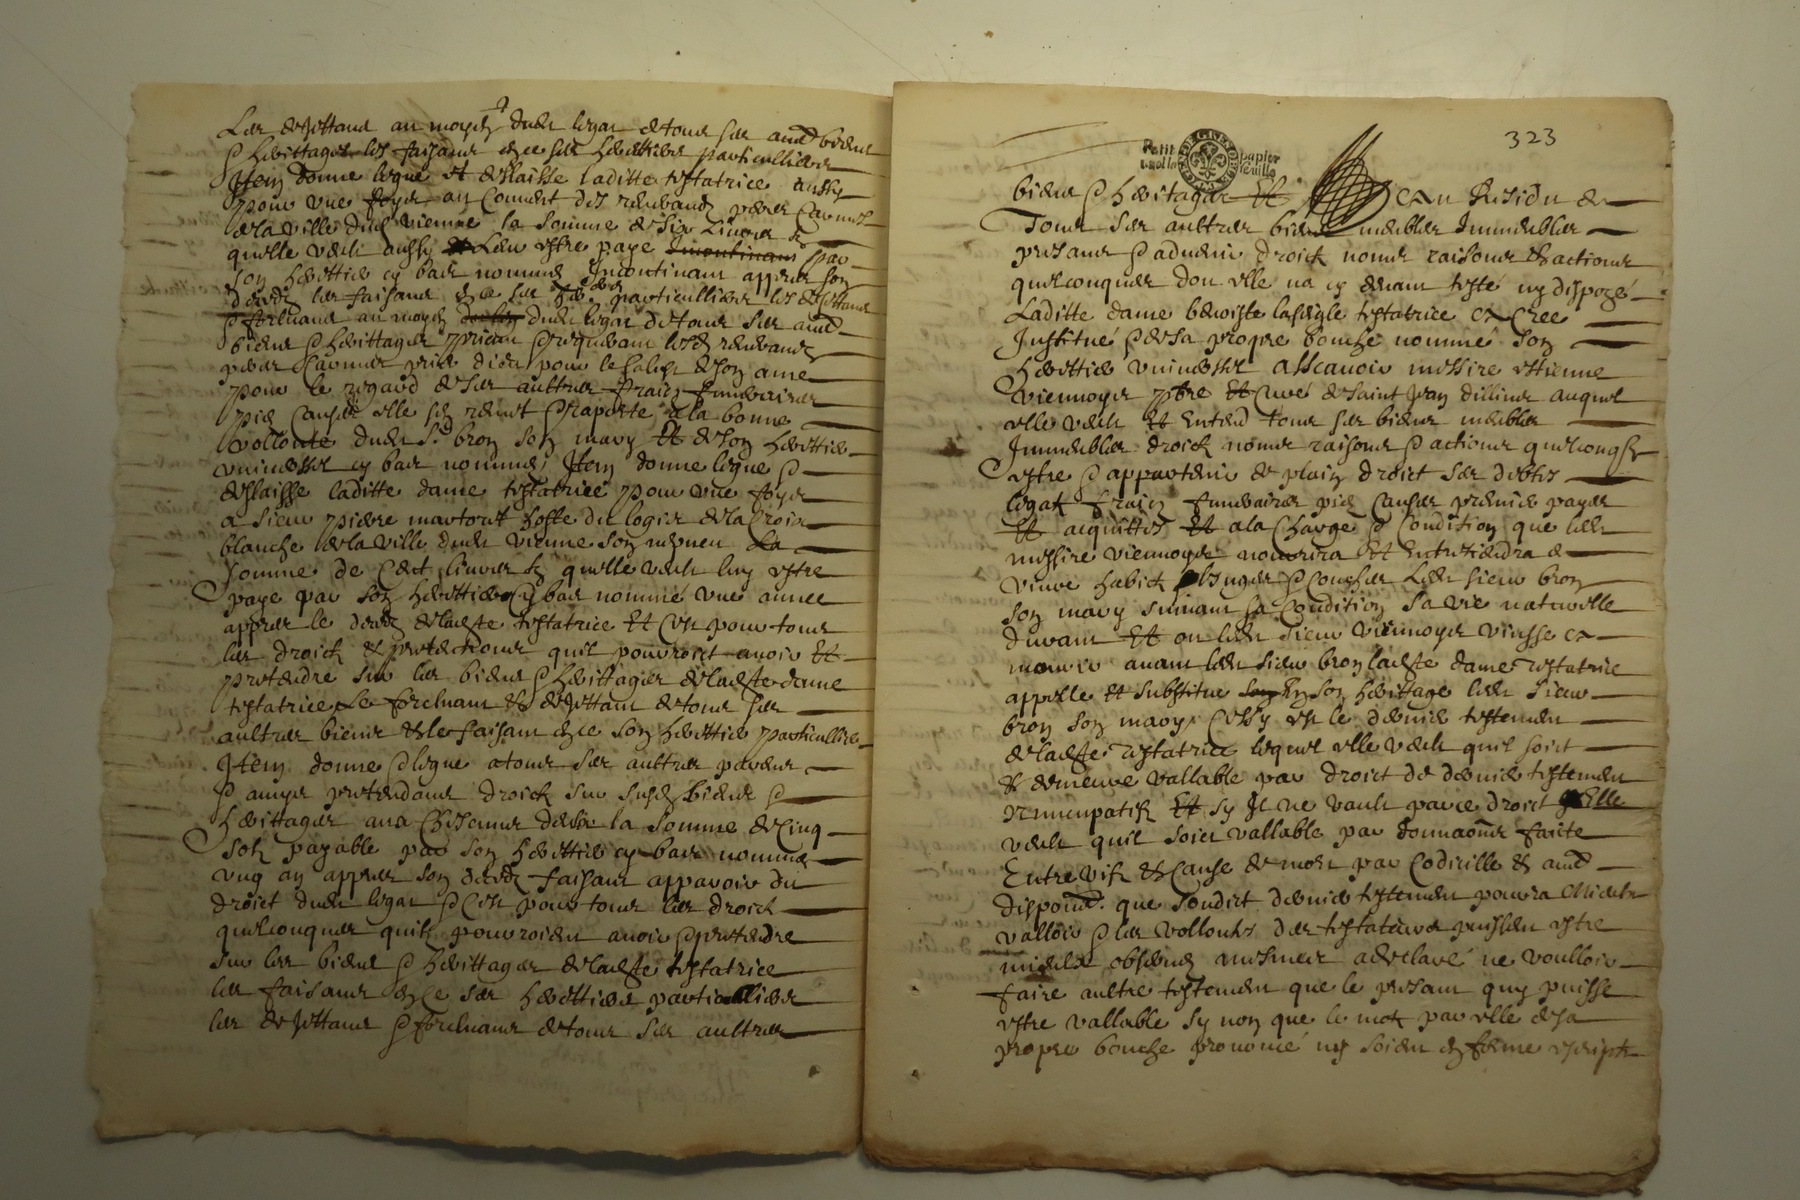 Les dejettant au moyen dudit legat de tous ses autd biens
& herittages les faisant en ce ses herittiers particulliers
Item donne legue et deslaisse laditte testatrice aussy
pour une foys au couvent des reverands peres Carmes
de la ville dud vienne la somme de six Livres tz
quelle veult aussy Leur estre paye Incontinant par
son herittier cy bas nommé Incontinant appres son
deces les faisant en ce ses particulliers les dejettant
& forcluant au moyen dudit legat de tous ses autd
biens & herittages priant & requerant lesd reverands
peres Carmes prier dieu pour le salut de son ame
pour le regard de ses auttres fraiz funeraires
pies causes elle sen remet & raporte a la bonne
vollonte dudit Sr bron son mary Et de son herittier
universel cy bas nommé, Item donne legue &
deslaisse laditte dame testatrice pour une foys
a sieur pierre hoste du logis de la Croix
blanche de la ville dudit vienne son nepveu La
somme de Cent livres tz quelle veult luy estre
paye par son herittier Cy bas nommé une annee
appres le deces de ladte testatrice Et C'est pour tous
les droictz & pretentions quil pouroict avoir Et
pretendre sur les biens & herittages de ladte dame
testatrice Le forcluant & dejettant de tous ses
aultres biens & le faisant en ce son herittier particullier
Item donne & legue a tous ses aultres parens
& amys pretendans droictz sur susdz biens &
herittages a la somme de Cinq
solz payable par son herittier cy bas nommé
ung an appres son deces faisant apparoir du
droict dudit legat & C'est pour tous les droictz
quelconques quilz pouroient avoir & pretendre
sur les biens & herittages de ladte testatrice
les faisant en Ce ses herittiers particulliers
les dejettant & forcluant de tous ses aultres
323
Petit papier
feuille
biens & heritages Et Au Residu de
Tous ses aultres biens meubles Immeubles
presans & advenir droictz noms raisons & actions
quelconques don elle na cy devant testé ny disposé
Laditte dame benoiste testatrice a Cree
Institué & de sa propre bouche nommé Son
herittier universel Asscavoir messire estienne
viennoys pbre Et Curé de Saint Jean auquel
elle veult Et Entend tous ses biens meubles
Immeubles droictz noms raisons & actions quelconques
estre & appartenir de plain droict ses debtes
legatz fraiz funeraires pies causes premier payes
Et acquittes Et a la Charge & Condition que ledit
messire viennoys nourira Et Entretiendra de
vivre habitz & Coucher Ledit sieur bron
son mary suivant sa Condition Sa vie naturelle
durant Et ou ledit sieur viennoys vinsse a
mourir avant ledit sieur bron ladte dame testatrice
appelle Et substitue En son herittage ledit Sieur
bron son mary, Cessy est le dernier testement
de ladte testatrice lequel elle veult quil soict
& demeure vallable par droict de dernier testement
Nuncupatif Et sy Il ne vault par ce droict Elle
veult quil soict vallable par donnaons faicte
Entre vifz & Cause de mort par Codicille & autd
dispoons que Sondict dernier testement poura Mieulx
valloir & les vollontes des testateurs puissent estre
mieulx observes a declaré ne voulloir
faire aultre testement que le presant quy puisse
estre vallable sy non que le mot par elle de sa
propre bouche prononcé ny soient en forme